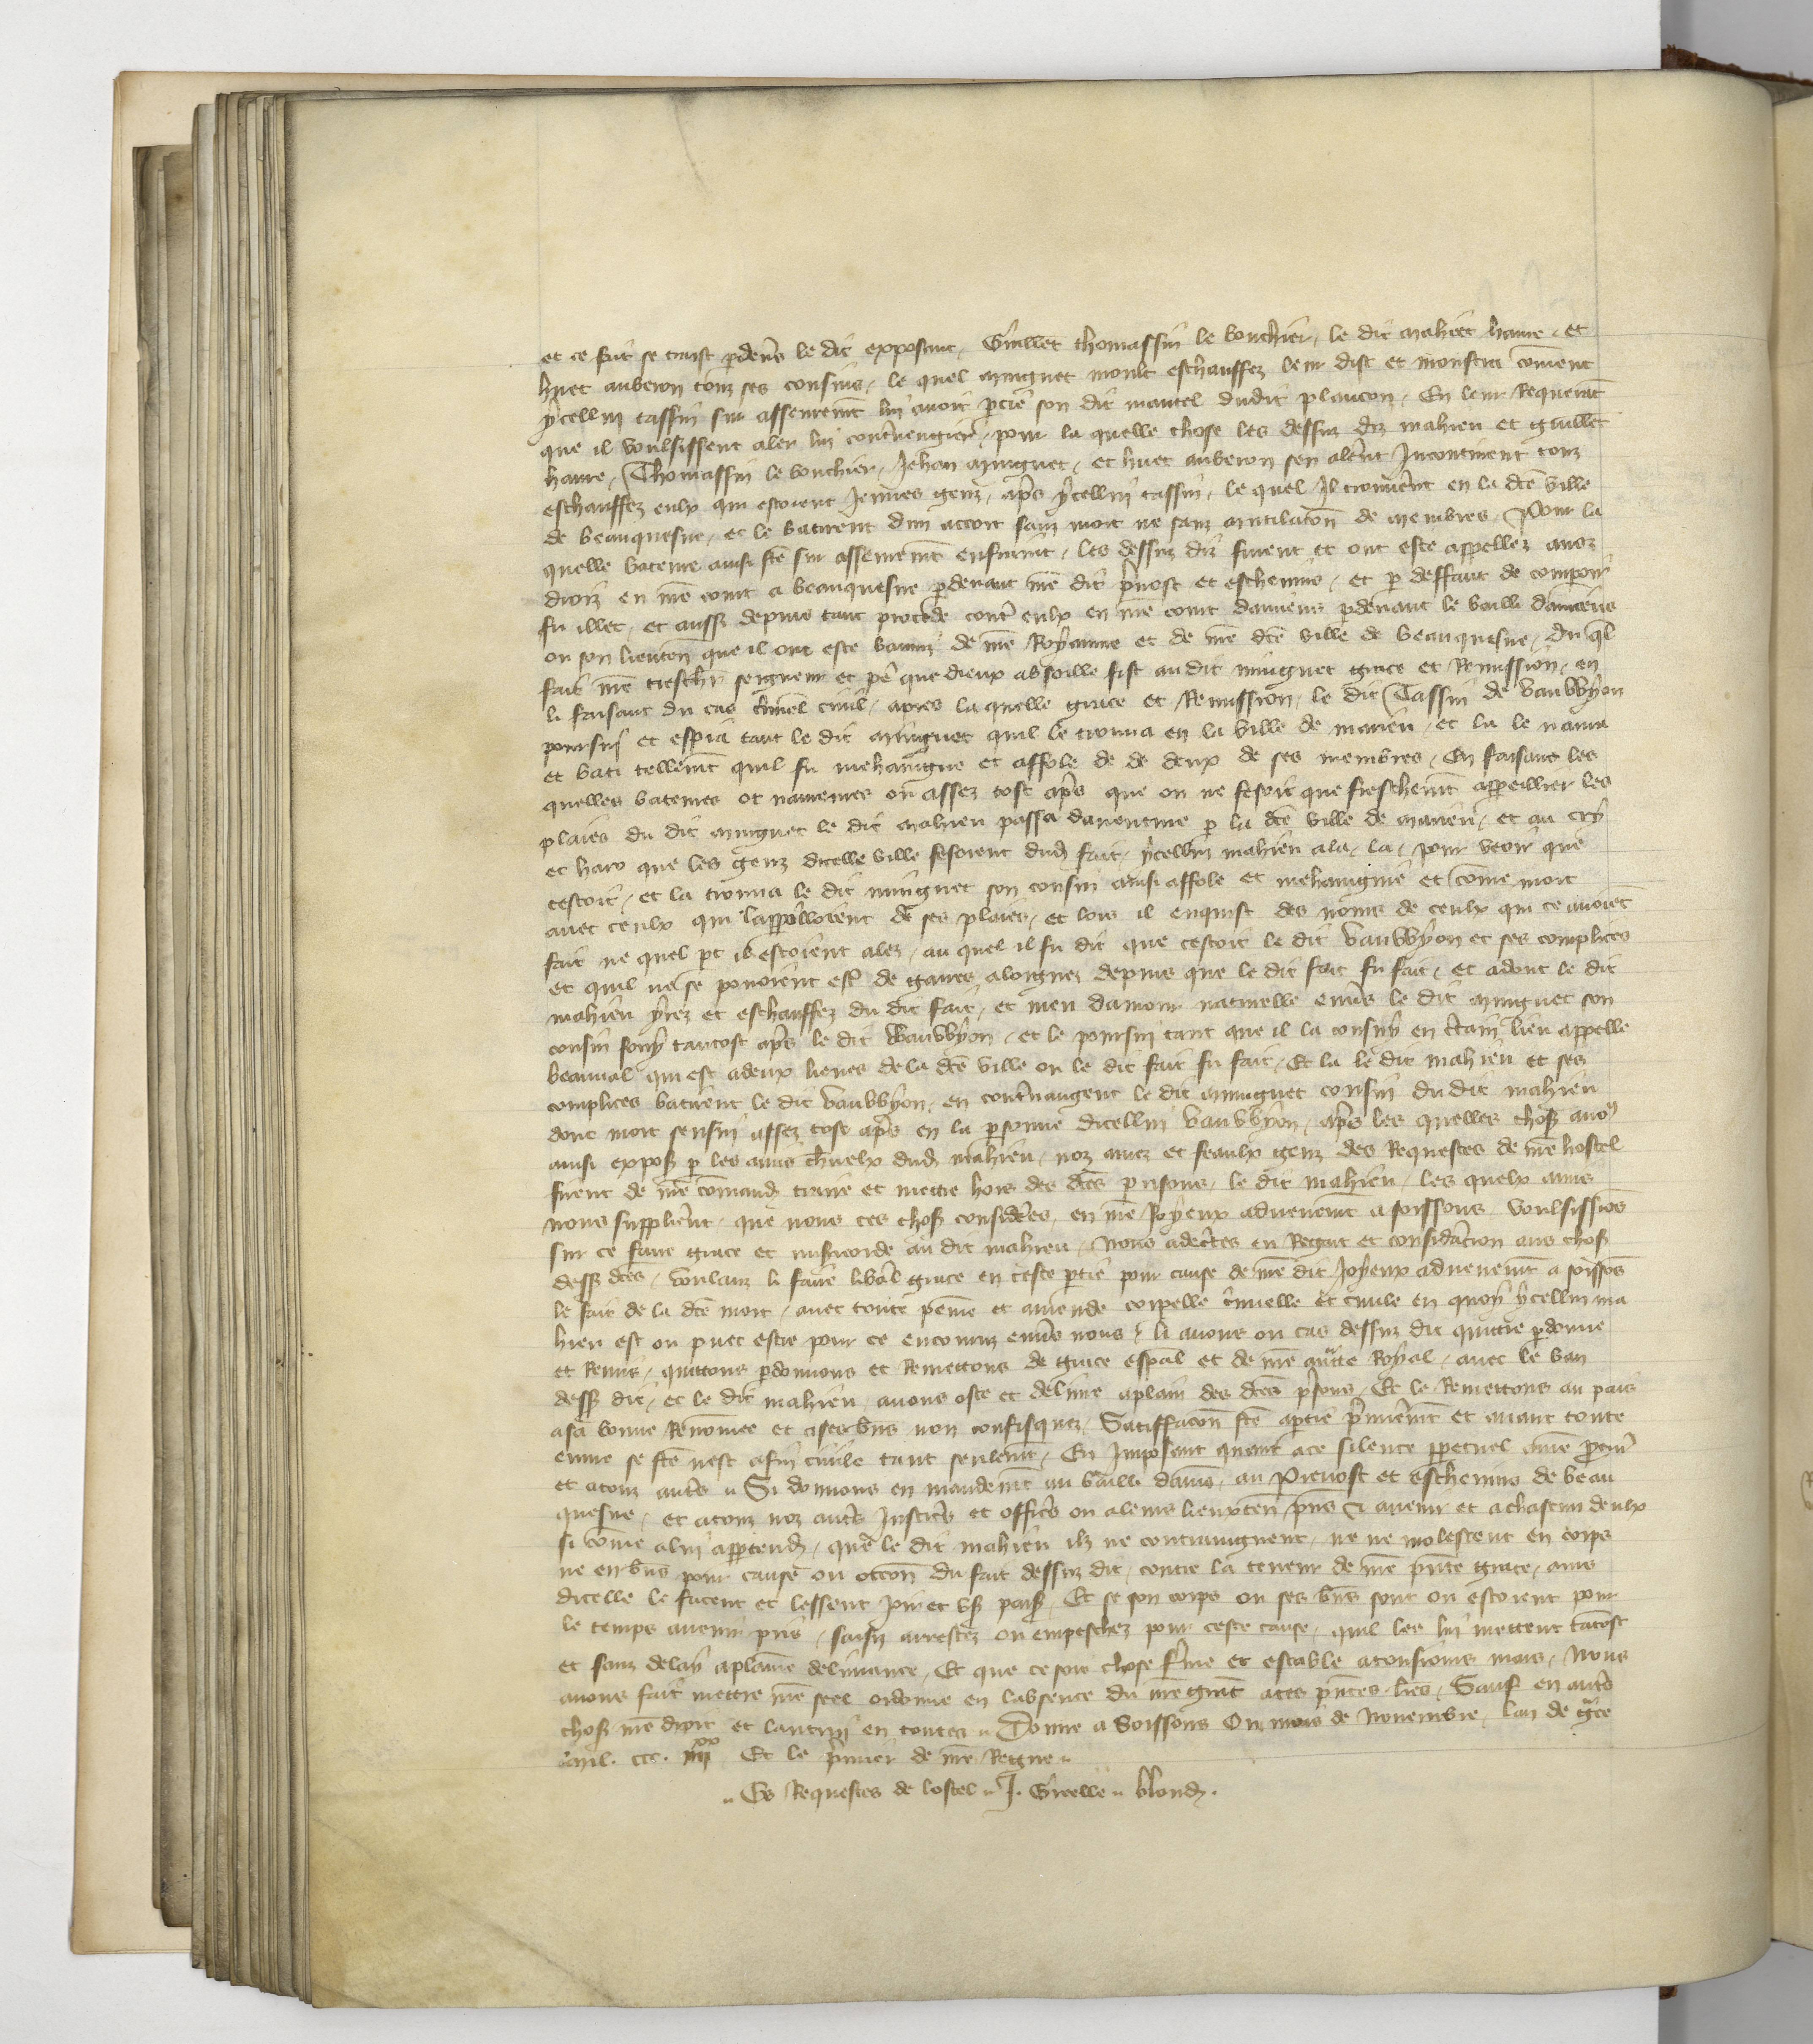 et ce fait se traist p̱deu̾s le dit exposant, Guillet thomassin le bouchier, le dit mahieu haure, et
huet auberon touz ses cousins, le quel minguet moult eschauffez leur dist et monstra coṁent
ycellui tassin sur asseuremēt lui auoit ꝑcié son dit mantel dudit plancon, En leur Requerāt
que il voulsissent aler lui contreuengier, pour la quelle chose les dessuz diz mahieu et guillet
haure, Thomassin le bouchier, Jehan minguet, et huet auberon sen alerēt Incontinent touz
eschauffez eulx qui estoient Jeunes genz, ap̄s ycellui tassin, le quel Il trouuerēt en la dc̄e ville
de beauquesne, et le batirent dun accort sanz mort ne sanz mutilacōn de menbres, Pour la
quelle bateure ainsi fc̄e sur asseuremēt enfraint, les dessuz diz furent et ont este appellez aus
droiz en nr̄e court a beauquesne ꝑdeuant nr̄e dit p̄uost et escheuins, et ꝑ deffaut de comparoir
fu illec, et aussi depuis tant procede contre eulx en nr̄e court damiens ꝑdeuant le bailli damiens
ou son lieuten̄ que il ont este banniz de nr̄e Royaume et de nr̄e dc̄e ville de beauquesne, Du q̄l
fait nr̄e treschr̄ seigneur et pe̾ que dieux absoille fist audit minguet grace et Remission, en
li faisant du cas cri̾nel ciuil, apres la quelle grace et Remission, le dit Tassin de vauvyon
poursui et espia tant le dit minguet quil le trouua en la ville de marieu, et la le naura
et bati tellemēt quil fu mehaingne et affole de de deux de ses membres, En faisant les
quelles bateures et naureures ou assez tost ap̄s que on ne fesoit que freschemēt appeillier les
plaies du dit minguet le dit mahieu passa dauenture ꝑ la dc̄e ville de marieu, et au cry
et haro que les genz dicelle ville fesoient dud fait, ycellui mahieu ala, la, pour veoir que
cestoit, et la trouua le dit minguet son cousin ainsi affole et mehaingnie et cōme mort
auec ceulx qui lappilloient de ses plaies, et lors il enquist des noms de ceulx qui ce auoiēt
fait ne quel ꝑt ilz estoient alez, au quel il fu dit que cestoit le dit vauvyon et ses complices
et quil ne se pouoient est̾ de gaires aloignez depuis que le dit fait fu fait, et adont le dit
mahieu yrez et eschauffez du dit fait, et meu damour naturelle enu̾s le dit minguet son
cousin souy tantost ap̄s le dit vauvyon, et le poursui tant que il la consuy en c̾tain lieu appelle
beauual qui est a deux lieues de la dc̄e ville ou le dit fait fu fait, Et la le dit mahieu et ses
complices batirent le dit vauvyon, en contreuangent le dit minguet cousin du dit mahieu
dont mort sensui assez tost ap̄s en la ꝑsonne dicellui vauvyon, ap̄s les quelles choss̄ auo9
ainsi expoß ꝑ les amis charnelx dud mahieu, noz amez et feaulx genz des Requestes de nr̄e hostel
firent de nr̄e cōmand traire et mettre hors des dc̄es prisons, le dit mahieu, les quelx amis
nous supplierēt, que nous ces choß considerees, en nr̄e Joyeux aduenemēt a soissons voulsissiōs
sur ce faire grace et misericorde au dit mahieu, Nous adecertes en Regart et consideracion aus choß
dess dc̄es, voulanz li faire liberal grace en ceste ꝑtie pour cause de nr̄e dit Joyeux aduenemēt a soissōs
le fait de la dc̄e mort, auec toute peine et amende corpelle criminelle et ciuile en quoy ycellui ma
hieu est ou puet estre pour ce encouruz enu̾s nous, li auons ou cas dessuz dit quittie ꝑdonne
et Remis, quittons ꝑdonnons et Remettons de grace esp̄al et de nr̄e aucte Royal, auec le ban
dess dit, et le dit mahieu auons oste et deliure aplain des dc̄es p̄sons, Et le Remettons au pais
a sa bonne Renommee et a ses bn̄s non confisquez, Satiffacōn fc̄e a ꝑtie p̄mieremēt et auant toute
euure se fc̄e nest afin ciuile tant seulemēt, En Imposant quant a ce silence ꝑpetuel a nr̄e ꝓcur̄
et a touz autr̄s Si donnons en mandemēt au bailli damiēs, au Preuost et Escheuins de beau
quesne, et a touz noz autr̄s Justicie̾s et officie̾s ou a leurs lieuxten̄ p̄ns et auenir et a chascun deulx
si cōme a lui appartend, que le dit mahieu ilz ne contraingnent, ne ne molestent en corps
ne en bn̄s pour cause ou occōn du fait dessuz dit, contre la teneur de nr̄e p̄nte grace, ains
dicelle le facent et lessent Joir et vß paiß, Et se son corps ou ses bn̄s sont ou estoient pour
le temps auenir pris, saisiz arrestez ou empeschez pour ceste cause, quil les lui mettent tātost
et sanz delay a plaine deliurance, Et que ce soit chose ferme et estable a tousiours mais, Nous
auons fait mettre nr̄e seel ordonne en labsence du nr̄e grāt a ces p̄ntes lr̄es, Sauf en autr̄s
choß nr̄e droit et lautruy en toutes Donne a Soissons Ou mois de Nouembre, lan de grc̄e
Mil. ccc. iiijxx Et le p̄mier de nr̄e Regne
Es Requestes de lostel J. Grelle blond.